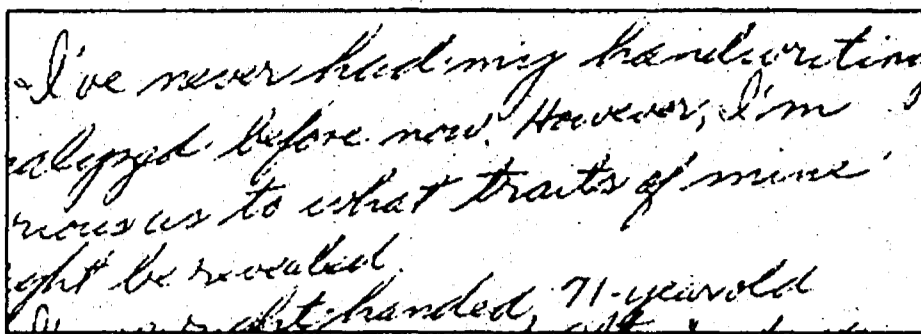 I've never had my handwriting
alyzed before now. However, I'm
rious as to what traits of mine
ght be revealed.
right-handed, 71-year old